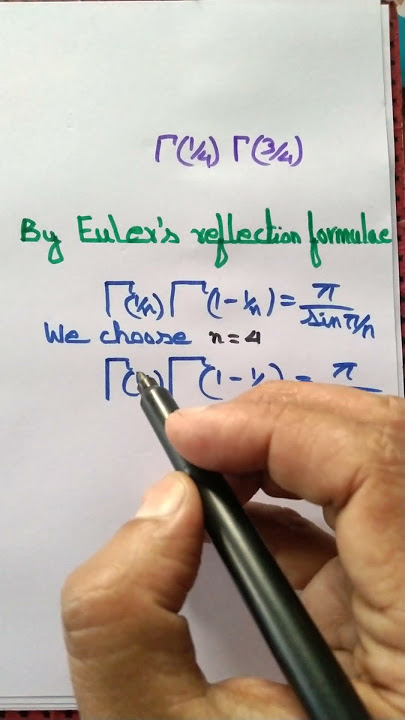 Γ(1/4) Γ(3/4)
By Euler's reflection formulae
Γ(1/n) Γ(1 - 1/n) = π / sin π/n
We choose n = 4
Γ( ) Γ(1 - 1/ ) = π